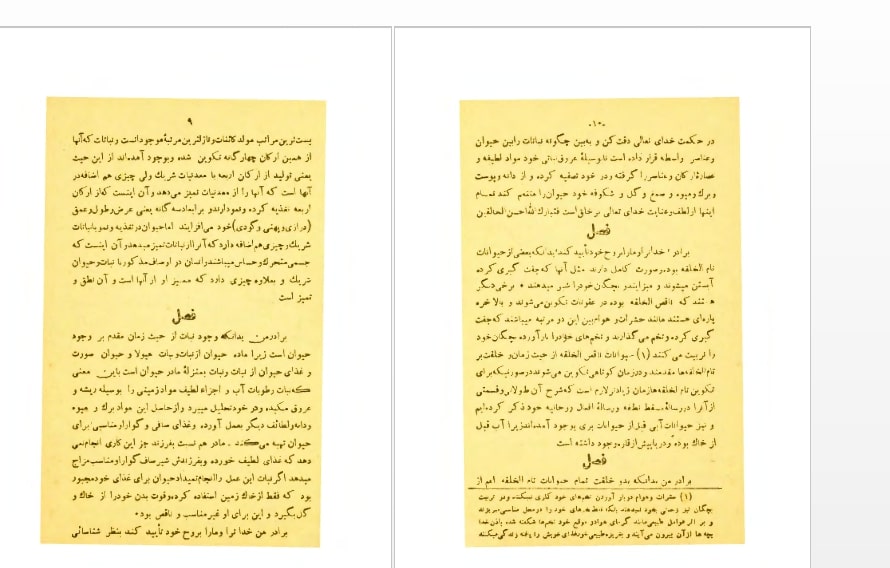 ۹
پست‌ترین مراتب مولد کائنات و نازلترین مرتبهٔ موجود است و نباتات که آنها
از همین ارکان چهارگانه تکوین شده و بوجود آمده‌اند از این حیث
یعنی تولید از ارکان اربعه با معدنیات شریك ولی چیزی هم اضافه در
آنها است که آنها را از معدنیات تمیز می‌دهد و آن اینست که از ارکان
اربعه تغذیه کرده و نمو دارند و بر ابعاد سه گانه یعنی عرض و طول و عمق
(درازی و پهنی و گودی) خود می‌افزایند اما حیوان در تغذیه و نمو با نباتات
شریك و چیزی هم اضافه دارد که آنرا از نباتات تمیز میدهد و آن اینست که
جسمی متحرك و حساس میباشند و انسان در اوصاف مذکور با نبات و حیوان
شریك و بعلاوه چیزی دارد که ممیز او از آنها است و آن نطق و
تمیز است
فصل
برادر من بدانکه وجود نبات از حیث زمان مقدم بر وجود
حیوان است زیرا ماده حیوان از نبات و نبات هیولا و حیوان صورت
و غذای حیوان از نبات و نبات بمنزلهٔ مادر حیوان است باین معنی
که نبات رطوبات آب و اجزاء لطیف مواد زمینی را بوسیله ریشه و
عروق مکیده و در خود تحلیل میبرد و از حاصل این مواد برك و میوه
و دانه و لطائف دیگر بعمل آورده و غذای صافی و گوارا و مناسبی برای
حیوان تهیه می‌کند . مادر هم نسبت بفرزند جز این کاری انجام نمی
دهد که غذای لطیف خورده و بفرزندش شیر صاف گوارا و مناسب مزاج
میدهد اگر نبات این عمل را انجام نمیداد حیوان برای غذای خود مجبور
بود که فقط از خاك زمین استفاده کرده و قوت بدن خود را از خاك و
گل بگیرد و این برای او غیر مناسب و ناقص بود.
برادر من خدا ترا و مارا بروح خود تأیید کند بنظر شناسائی
-۱۰-
در حکمت خدای تعالی دقت کن و به‌بین چگونه نباتات را بین حیوان
و عناصر واسطه قرار داده است تا بوسیلهٔ عروق مواد لطیفه و
عصارهٔ ارکان و عناصر را گرفته و در خود تصفیه کرده و از دانه و پوست
و برك و میوه و صمغ و گل و شکوفه خود حیوان را متنعم کند تمام
اینها از لطف و عنایت خدای تعالی بر خلق است فتبارك الله احسن الخالقین
فصل
برادر ! خدا تو و مارا بروح خود تأیید کند، بدانکه بعضی از حیوانات
تام الخلقه بوده و صورت کامل دارند مثل آنها که جفت گیری کرده
آبستن میشوند و میزایند و بچگان خود را شیر میدهند ، برخی دیگر
هستند که ناقص الخلقه بوده در عفونات تکوین می‌شوند و بالاخره
پاره‌ای هستند مانند حشرات و هوام بین این دو مرتبه میباشند که جفت
گیری کرده و تخم می‌گذارند و تخم‌های خود را بار آورده بچگان خود
را تربیت می کنند (۱) حیوانات ناقص الخلقه از حیث زمان و خلقت بر
تام الخلقه‌ها مقدمند و در زمان کوتاهی تکوین می‌شوند در صورتیکه برای
تکوین تام الخلقه‌ها زمان زیادتر لازم است که شرح آن طولانی و قسمتی
از آنرا در رسالهٔ مسقط نطفه و رسالهٔ افعال روحانیه خود ذکر کرده‌ایم
و نیز حیوانات آبی قبل از حیوانات بری بوجود آمده‌اند زیرا آب قبل
از خاك بوده و دریا پیش از قاره وجود داشته است
فصل
برادر من بدانکه بدو خلقت تمام حیوانات تام الخلقه اعم از
(۱) حشرات و هوام در بار آوردن تخمهای خود کاری نمیکنند و در تربیت
بچگان نیز زحمتی بخود نمیدهند بلکه تخمهای خود را در محل مناسبی میریزند
و بر اثر عوامل طبیعی مانند گرمای هوا در موقع خود تخمها شکفته شده باذن خدا
بچه ها از آن بیرون می‌آیند و بغریزه طبیعی خود غذای خویش را یافته زندگی میکنند